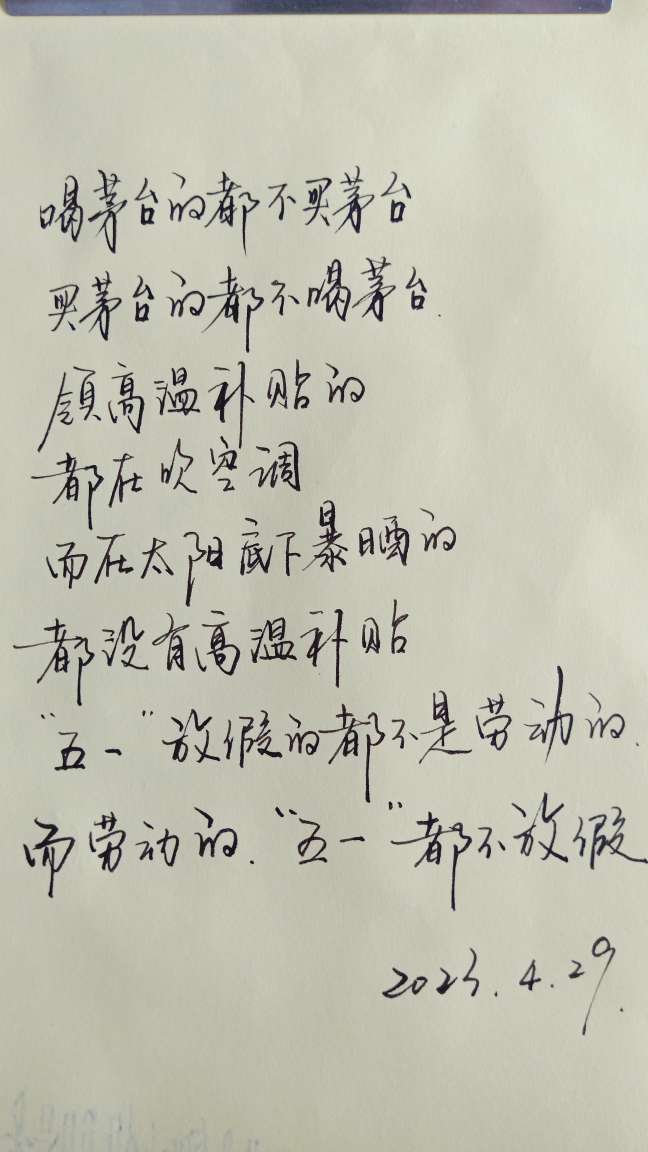 喝茅台的都不买茅台
买茅台的都不喝茅台.
领高温补贴的
都在吹空调
而在太阳底下暴晒的
都没有高温补贴
"五一"放假的都不是劳动的.
而劳动的."五一"都不放假
2023.4.29.